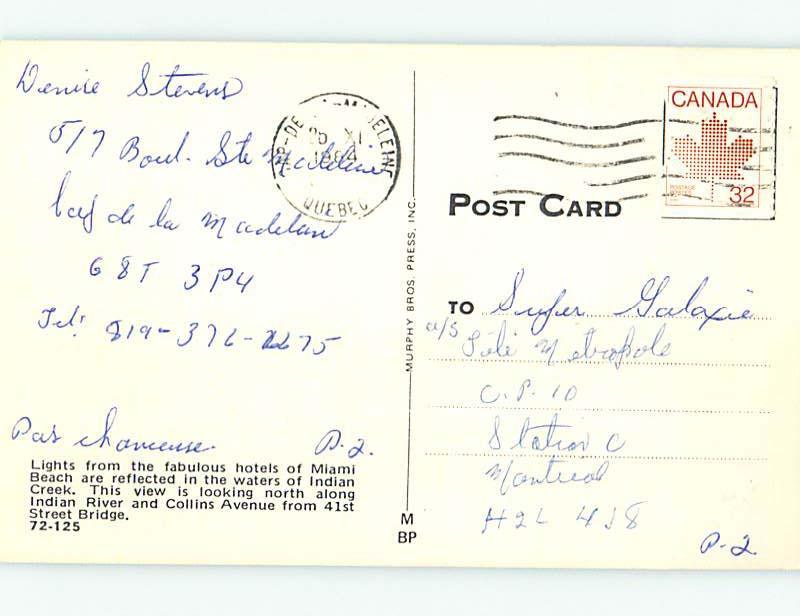 Denise Stevens
517 Boul. Ste Madeleine
Cap de la Madeleine
G8T 3P4
Tel: 819-376-
Pas chanceuse P-2.
Lights from the fabulous hotels of Miami
Beach are reflected in the waters of Indian
Creek. This view is looking north along
Indian River and Collins Avenue from 41st
Street Bridge.
72-125
MURPHY BROS. PRESS, INC.
M
BP
MADELEINE
XI
1984
QUEBEC
CANADA
32
POST CARD
TO Super Galaxie
a/s Télé Métropole
C.P. 10
Station C
Montreal
H2L 4J8
P-2.